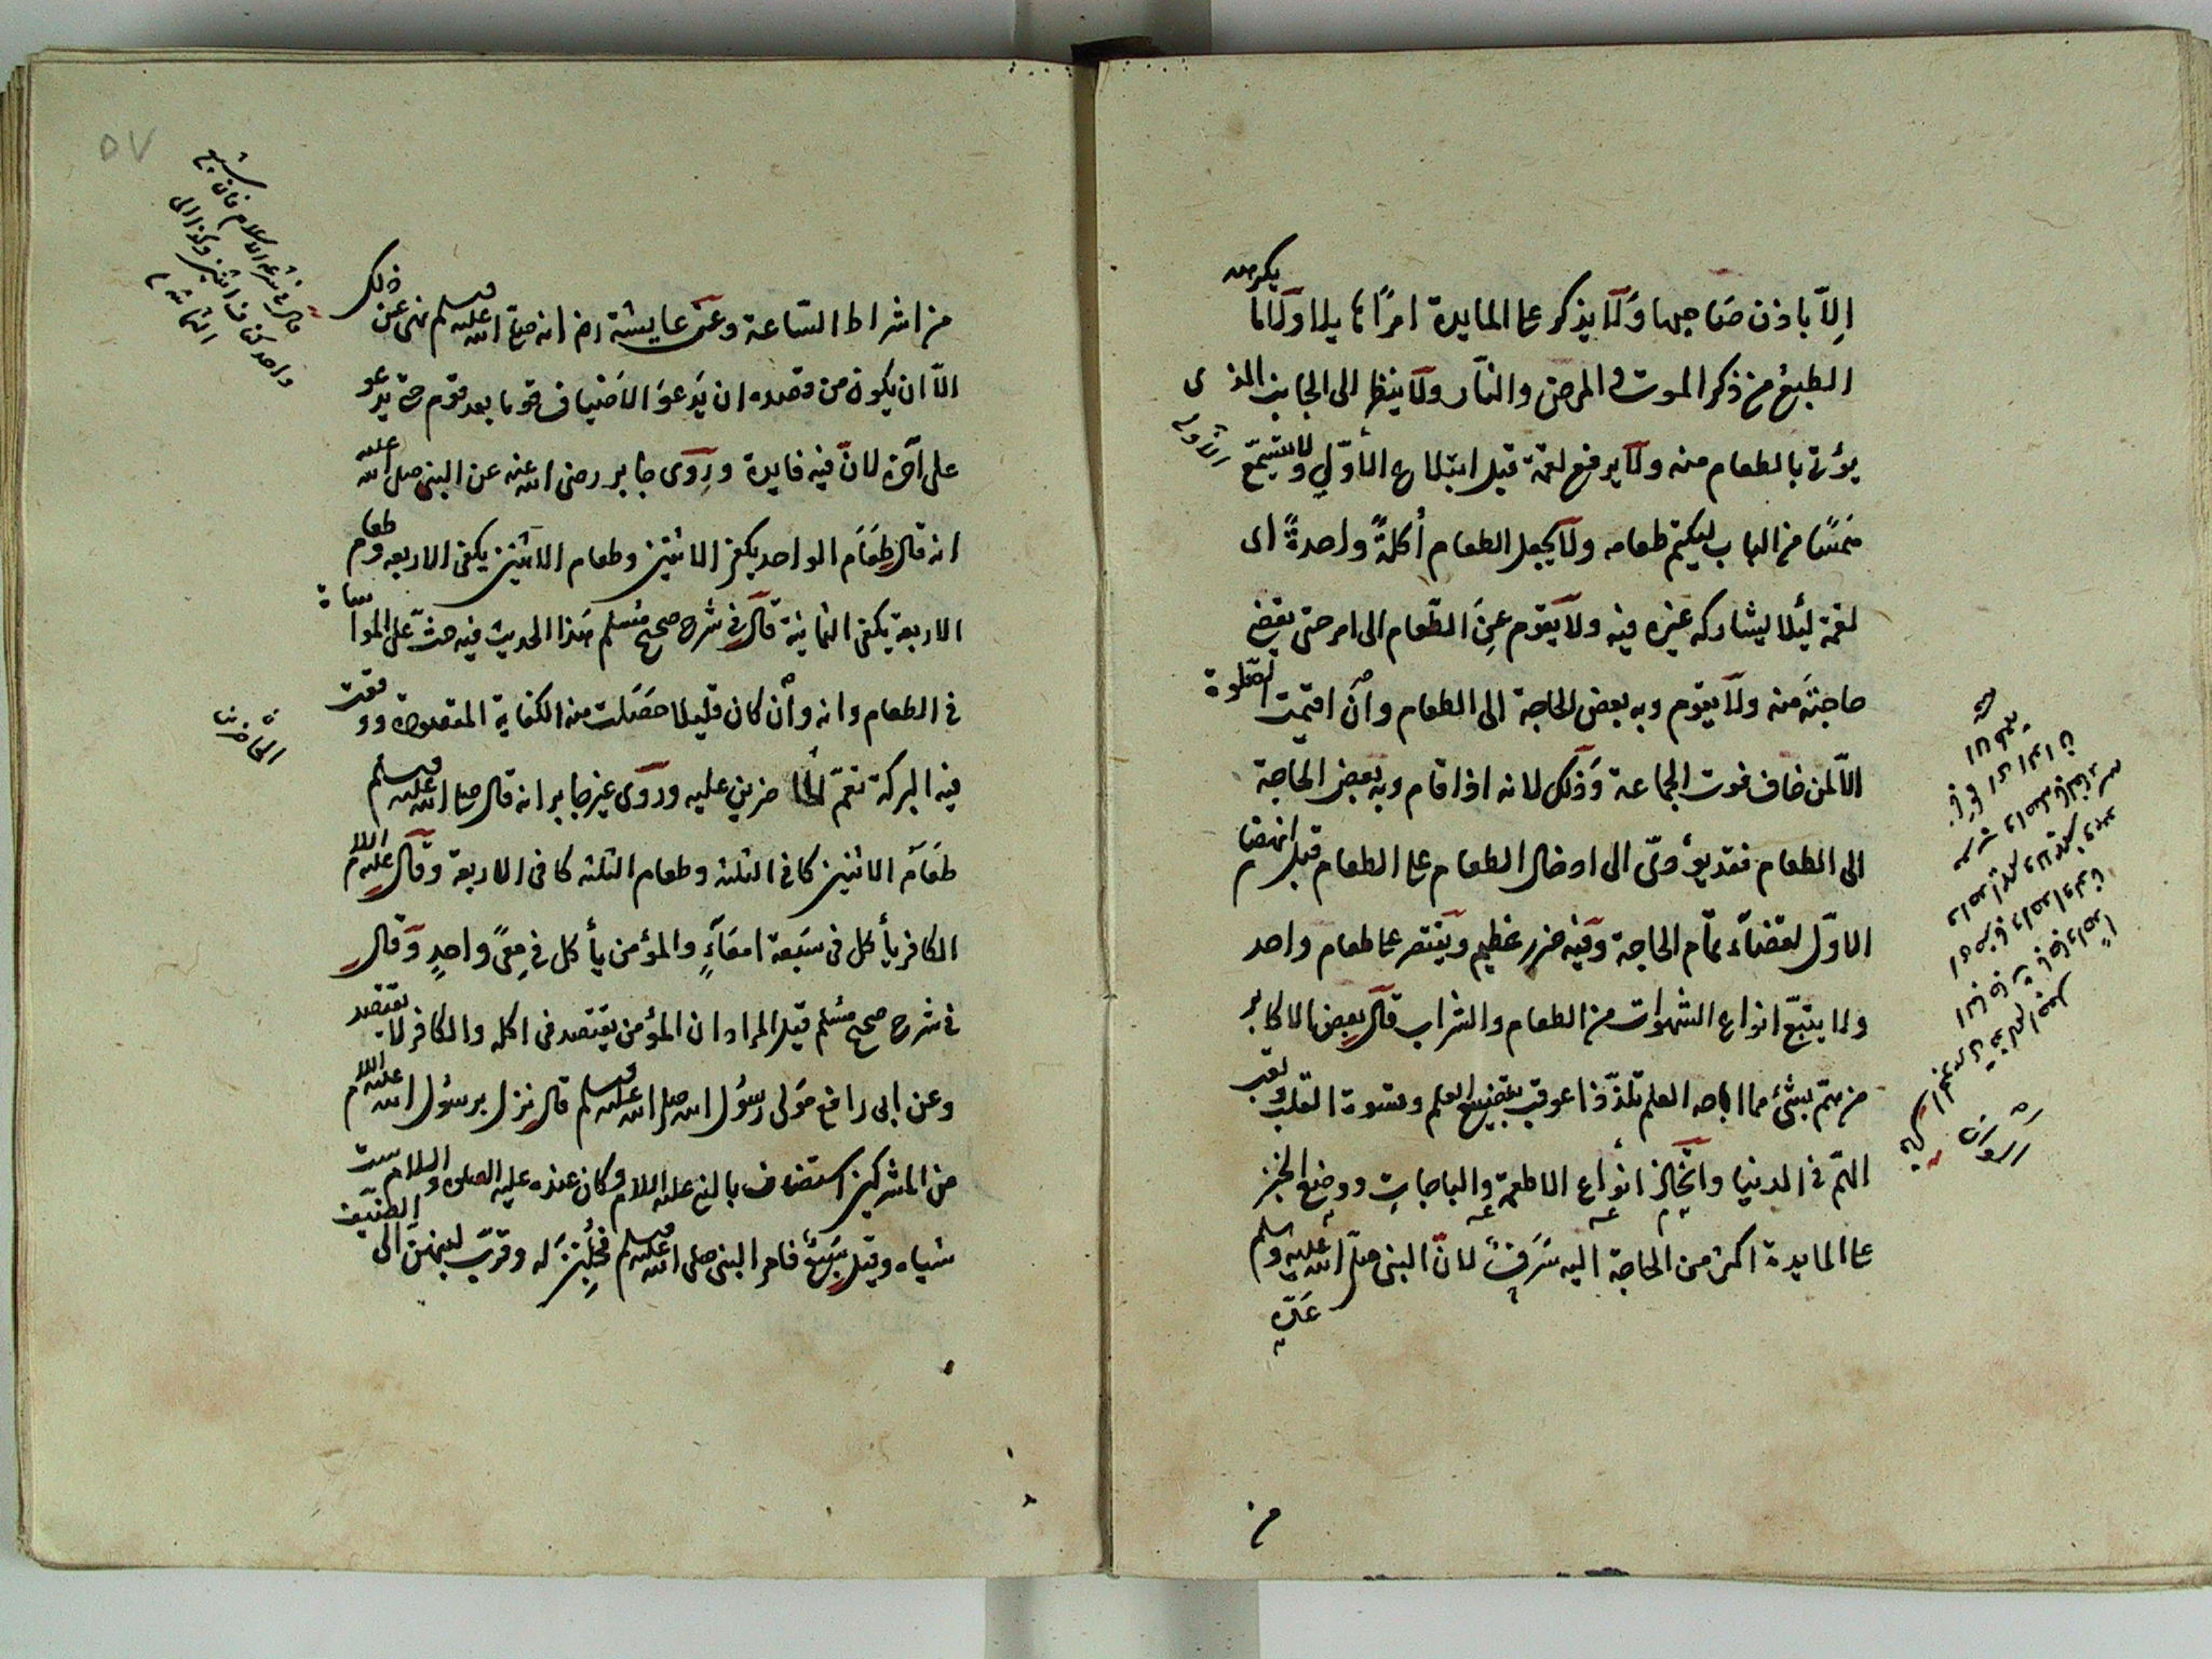 إلا باذن صاحبها ولا يذكر على المايدة امرا هايلا ولا ما يكرهه
الطبع من ذكر الموت والمرض والنار ولا ينظر الى الجانب الذى
يؤتى بالطعام منه ولا يرفع لقمة قبل ابتلاع الأولى ولا يتسمع
حسا من الباب ليكتم طعامه ولا يجعل الطعام أكلة واحدة اى
لقمة ليلا يشاركه غيره فيه ولا يقوم عن الطعام الى امر حتى يقضى
حاجته منه ولا يقوم وبه بعض الحاجة الى الطعام وان اقيمت الصلوة
الا لمن خاف فوت الجماعة وذلك لانه اذا قام وبه بعض الحاجة
الى الطعام فقد يؤدى الى ادخال الطعام على الطعام قبل انهضام
الاول لقضاء تمام الحاجة وفيه ضرر عظيم ويقتصر على طعام واحد
ولا يتبع انواع الشهوات من الطعام والشراب قال بعض الاكابر
من همّ بشئ مما اباحه العلم تلذذا عوقب بتضييع العلم وقسوة القلب وتعب
الهمّ فى الدنيا واتخاذ انواع الاطعمة والباجات ووضع الخبز
على المايدة اكثر من الحاجة اليه سرف لان النبى صلى الله عليه وسلم
عدّه
من
من اشراط الساعة وعن عايشة رض انه صلى الله عليه وسلم نهى عن ذلك
الا ان يكون من قصده ان يدعو الاضياف قوما بعد قوم حتى يدعو
على آخره لان فيه فايدة وروى جابر رضى الله عنه عن النبى صلى الله عليه
انه قال طعام الواحد يكفى الاثنين وطعام الاثنين يكفى الاربعة وطعام
الاربعة يكفى الثمانية قال فى شرح صحيح مسلم هذا الحديث فيه حث على المواساة
فى الطعام وانه وان كان قليلا حصلت منه الكفاية المقصودة ووقعت
فيه البركة تعم الحاضرين عليه وروى غير جابر انه قال صلى الله عليه وسلم
طعام الاثنين كافى الثلثة وطعام الثلثة كافى الاربعة وقال عليه السلام
الكافر يأكل فى سبعة امعاء والمؤمن يأكل فى معى واحد وقال
فى شرح صحيح مسلم قيل المراد ان المؤمن يقتصد فى اكله والكافر لا يقتصد
وعن ابى رافع مولى رسول الله صلى الله عليه وسلم قال نزل برسول الله عليه السلام
من المشركين استضاف بالنبى عليه السلام وكان عنده عليه الصلوة والسلام ست
شياه وقيل سبع فامر النبى صلى الله عليه وسلم فحلبت له وقرّب لبنهن الى الضيف
الحاضرين
٥٧